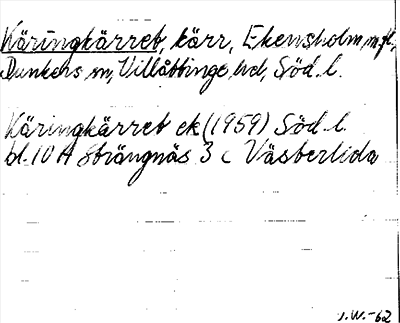 Käringkärret, kärr, Ekensholm, m.fl.,
Dunkers sn, Villåttinge hd, Söd. l.
Käringkärret ek (1959) Söd. l.
bl. 10 H Strängnäs 3 c Västerlida
J.W.-62